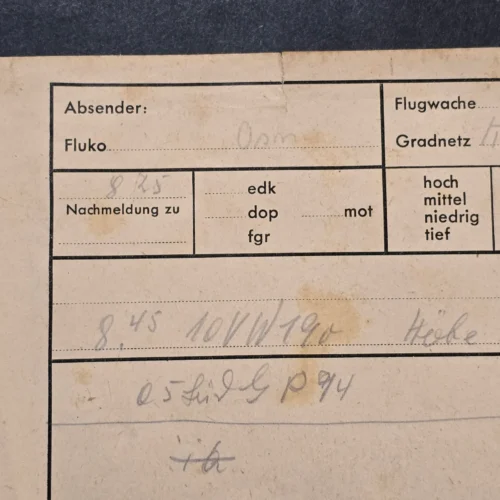 Absender: Flugwache
Fluko Osn Gradnetz H
8 25
Nachmeldung zu
edk
dop mot
fgr
hoch
mittel
niedrig
tief
8.45 10 VW 190 Höhe
05 Süd G P 94